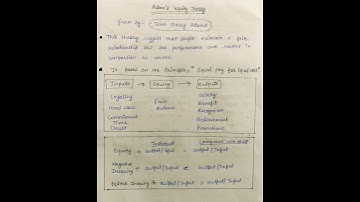 Adam's Equity Theory
given by:- John Stacey Adams
This theory suggest that people maintain a fair
relationship b/w the performance and reward in
comparison to others.
It is Based on the Principle, "Equal pay for Equal work"
Inputs → Equity → Outputs
Loyality Salary
Hard work Fair Benefit
Commitment Balance Recognition
Time Achievement
Desert Promotions
Individual Compared with other
Equity = Output/Input = Output/Input
Negative
Inequity = Output/Input < Output/Input
Positive Inequity = Output/Input > Output/Input